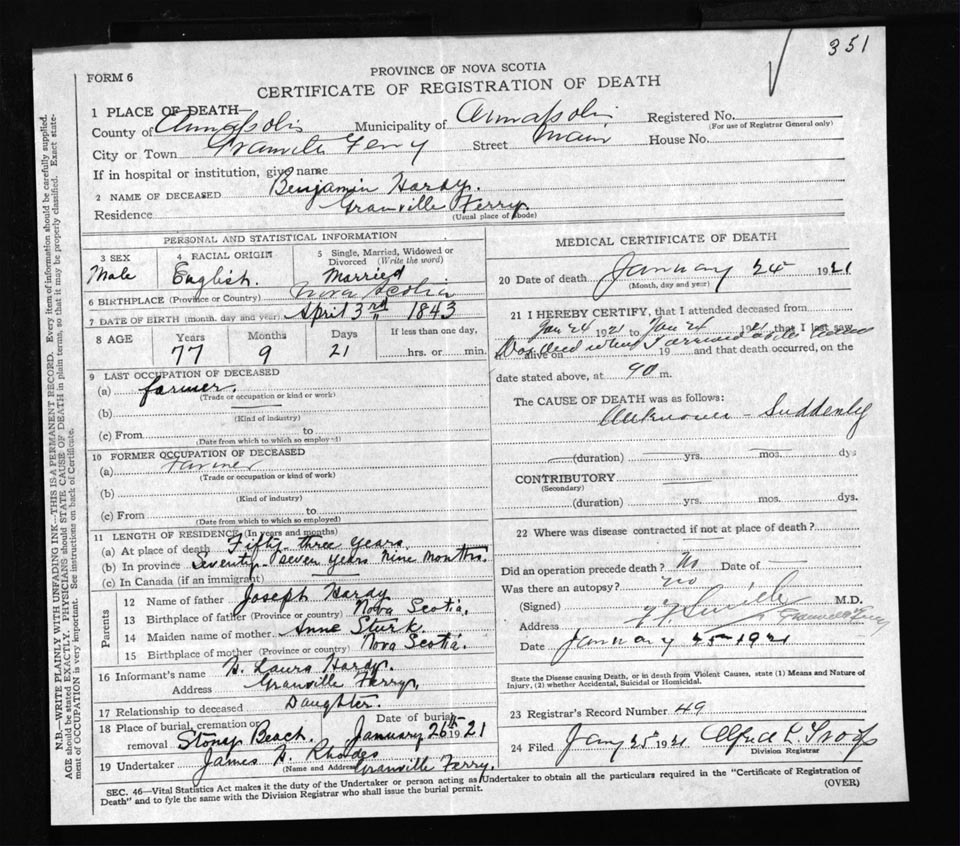 351
PROVINCE OF NOVA SCOTIA
FORM 6
CERTIFICATE OF REGISTRATION OF DEATH
1 PLACE OF DEATH—
County of Annapolis Municipality of Annapolis Registered No.
(For use of Registrar General only)
City or Town Granville Ferry Street Main House No.
If in hospital or institution, give name
2 NAME OF DECEASED Benjamin Hardy.
Residence Granville Ferry.
(Usual place of abode)
PERSONAL AND STATISTICAL INFORMATION
3 SEX 4 RACIAL ORIGIN 5 Single, Married, Widowed or
Divorced (Write the word)
Male English. Married
6 BIRTHPLACE (Province or Country) Nova Scotia
7 DATE OF BIRTH (month, day and year) April 3rd 1843
8 AGE Years Months Days If less than one day,
77 9 21 hrs. or min.
9 LAST OCCUPATION OF DECEASED
(a) farmer.
(Trade or occupation or kind of work)
(b)
(Kind of industry)
(c) From to
(Date from which to which so employed)
10 FORMER OCCUPATION OF DECEASED
(a) Farmer
(Trade or occupation or kind of work)
(b)
(Kind of industry)
(c) From to
(Date from which to which so employed)
11 LENGTH OF RESIDENCE (In years and months)
(a) At place of death Fifty three Years.
(b) In province Seventy-seven Years Nine Months.
(c) In Canada (if an immigrant)
Parents
12 Name of father Joseph Hardy
13 Birthplace of father (Province or country) Nova Scotia.
14 Maiden name of mother Anne Sturk.
15 Birthplace of mother (Province or country) Nova Scotia.
16 Informant's name H. Laura Hardy.
Address Granville Ferry,
17 Relationship to deceased Daughter.
18 Place of burial, cremation or Date of burial
removal Stony Beach. January 26th 1921
19 Undertaker James H. Rhodes
(Name and Address) Granville Ferry.
MEDICAL CERTIFICATE OF DEATH
20 Date of death January 24 1921
(Month, day and year)
21 I HEREBY CERTIFY, that I attended deceased from
Jan 24 1921 to Jan 24 1921 that I last saw
Was dead when I arrived at the
alive on 19 and that death occurred, on the
date stated above, at m.
The CAUSE OF DEATH was as follows:
Unknown - Suddenly
(duration) yrs. mos. dys
CONTRIBUTORY
(Secondary)
(duration) yrs. mos. dys.
22 Where was disease contracted if not at place of death?
Did an operation precede death? No Date of —
Was there an autopsy? no
(Signed) M.D.
Address Granville Ferry
Date January 25 1921
State the Disease causing Death, or in death from Violent Causes, state (1) Means and Nature of
Injury, (2) whether Accidental, Suicidal or Homicidal.
23 Registrar's Record Number 49
24 Filed Jany 25 1921 Alfred L. Troop
Division Registrar
SEC. 46—Vital Statistics Act makes it the duty of the Undertaker or person acting as Undertaker to obtain all the particulars required in the "Certificate of Registration of
Death" and to fyle the same with the Division Registrar who shall issue the burial permit.
(OVER)
N.B.—WRITE PLAINLY WITH UNFADING INK—THIS IS A PERMANENT RECORD. Every item of information should be carefully supplied.
AGE should be stated EXACTLY. PHYSICIANS should STATE CAUSE OF DEATH in plain terms, so that it may be properly classified. Exact state-
ment of OCCUPATION is very important. See instructions on back of Certificate.